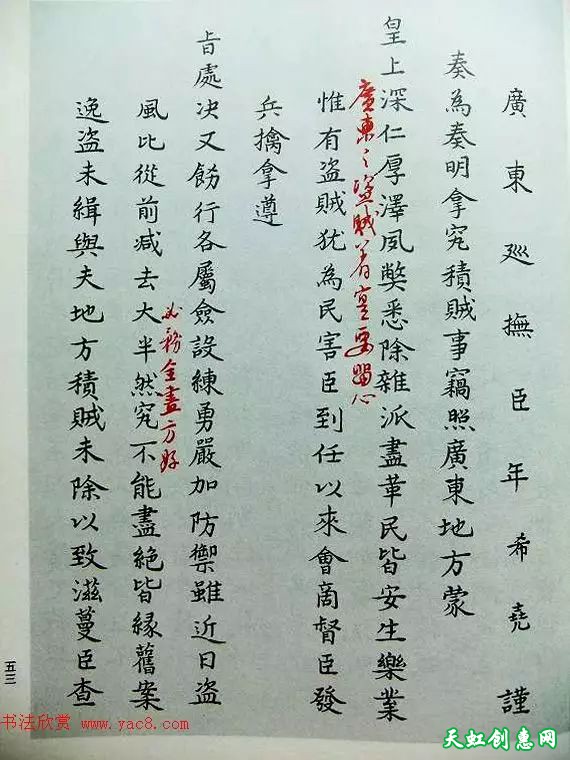 廣東巡撫臣年希堯謹
奏為奏明拿究積賊事竊照廣東地方蒙
皇上深仁厚澤夙獘悉除雜派盡革民皆安生樂業
廣東之盜賊着實要留心
惟有盜賊犹為民害臣到任以來會商督臣發
兵擒拿遵
旨處决又飭行各屬僉設練勇嚴加防禦雖近日盜
必務全盡方好
風比從前减去大半然究不能盡絕皆縁舊案
逸盜未緝與夫地方積賊未除以致滋蔓臣查
五三
书法欣赏 www.yac8.com
天虹创惠网